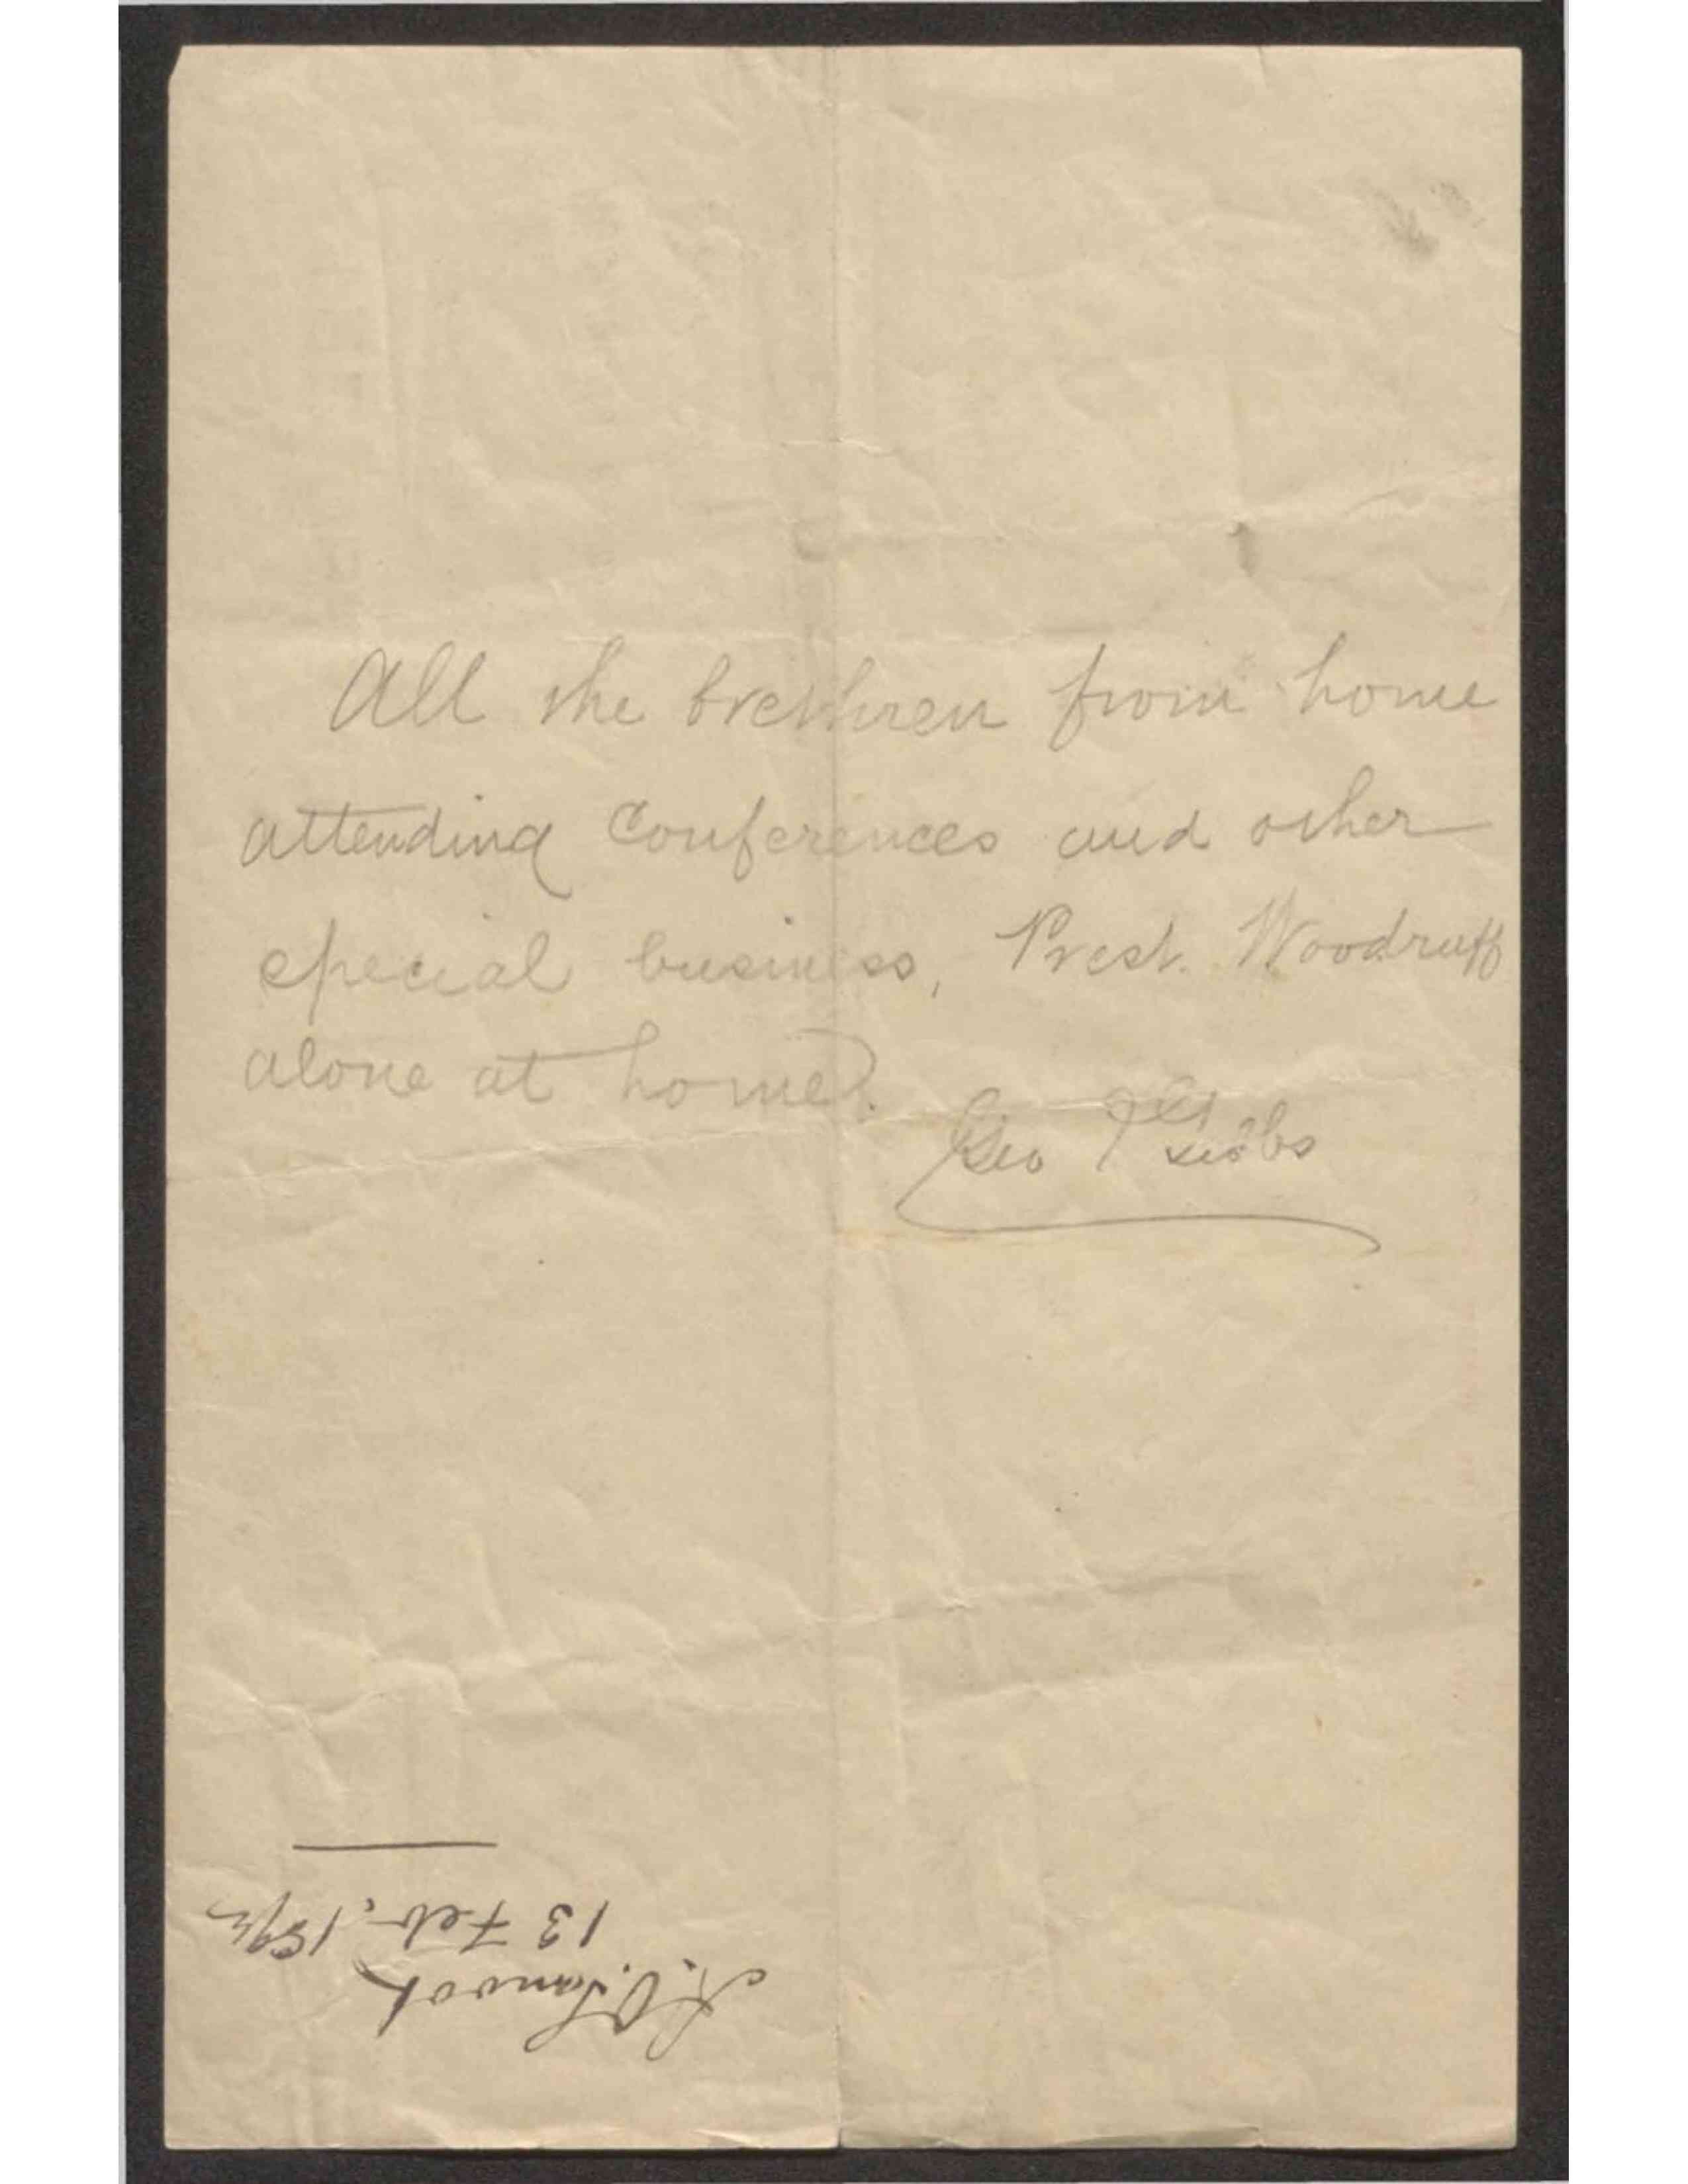 All the brethren from home
attending Conferences and other
special business, Prest. Woodruff
alone at home.
Geo F Gibbs
13 Feb.,